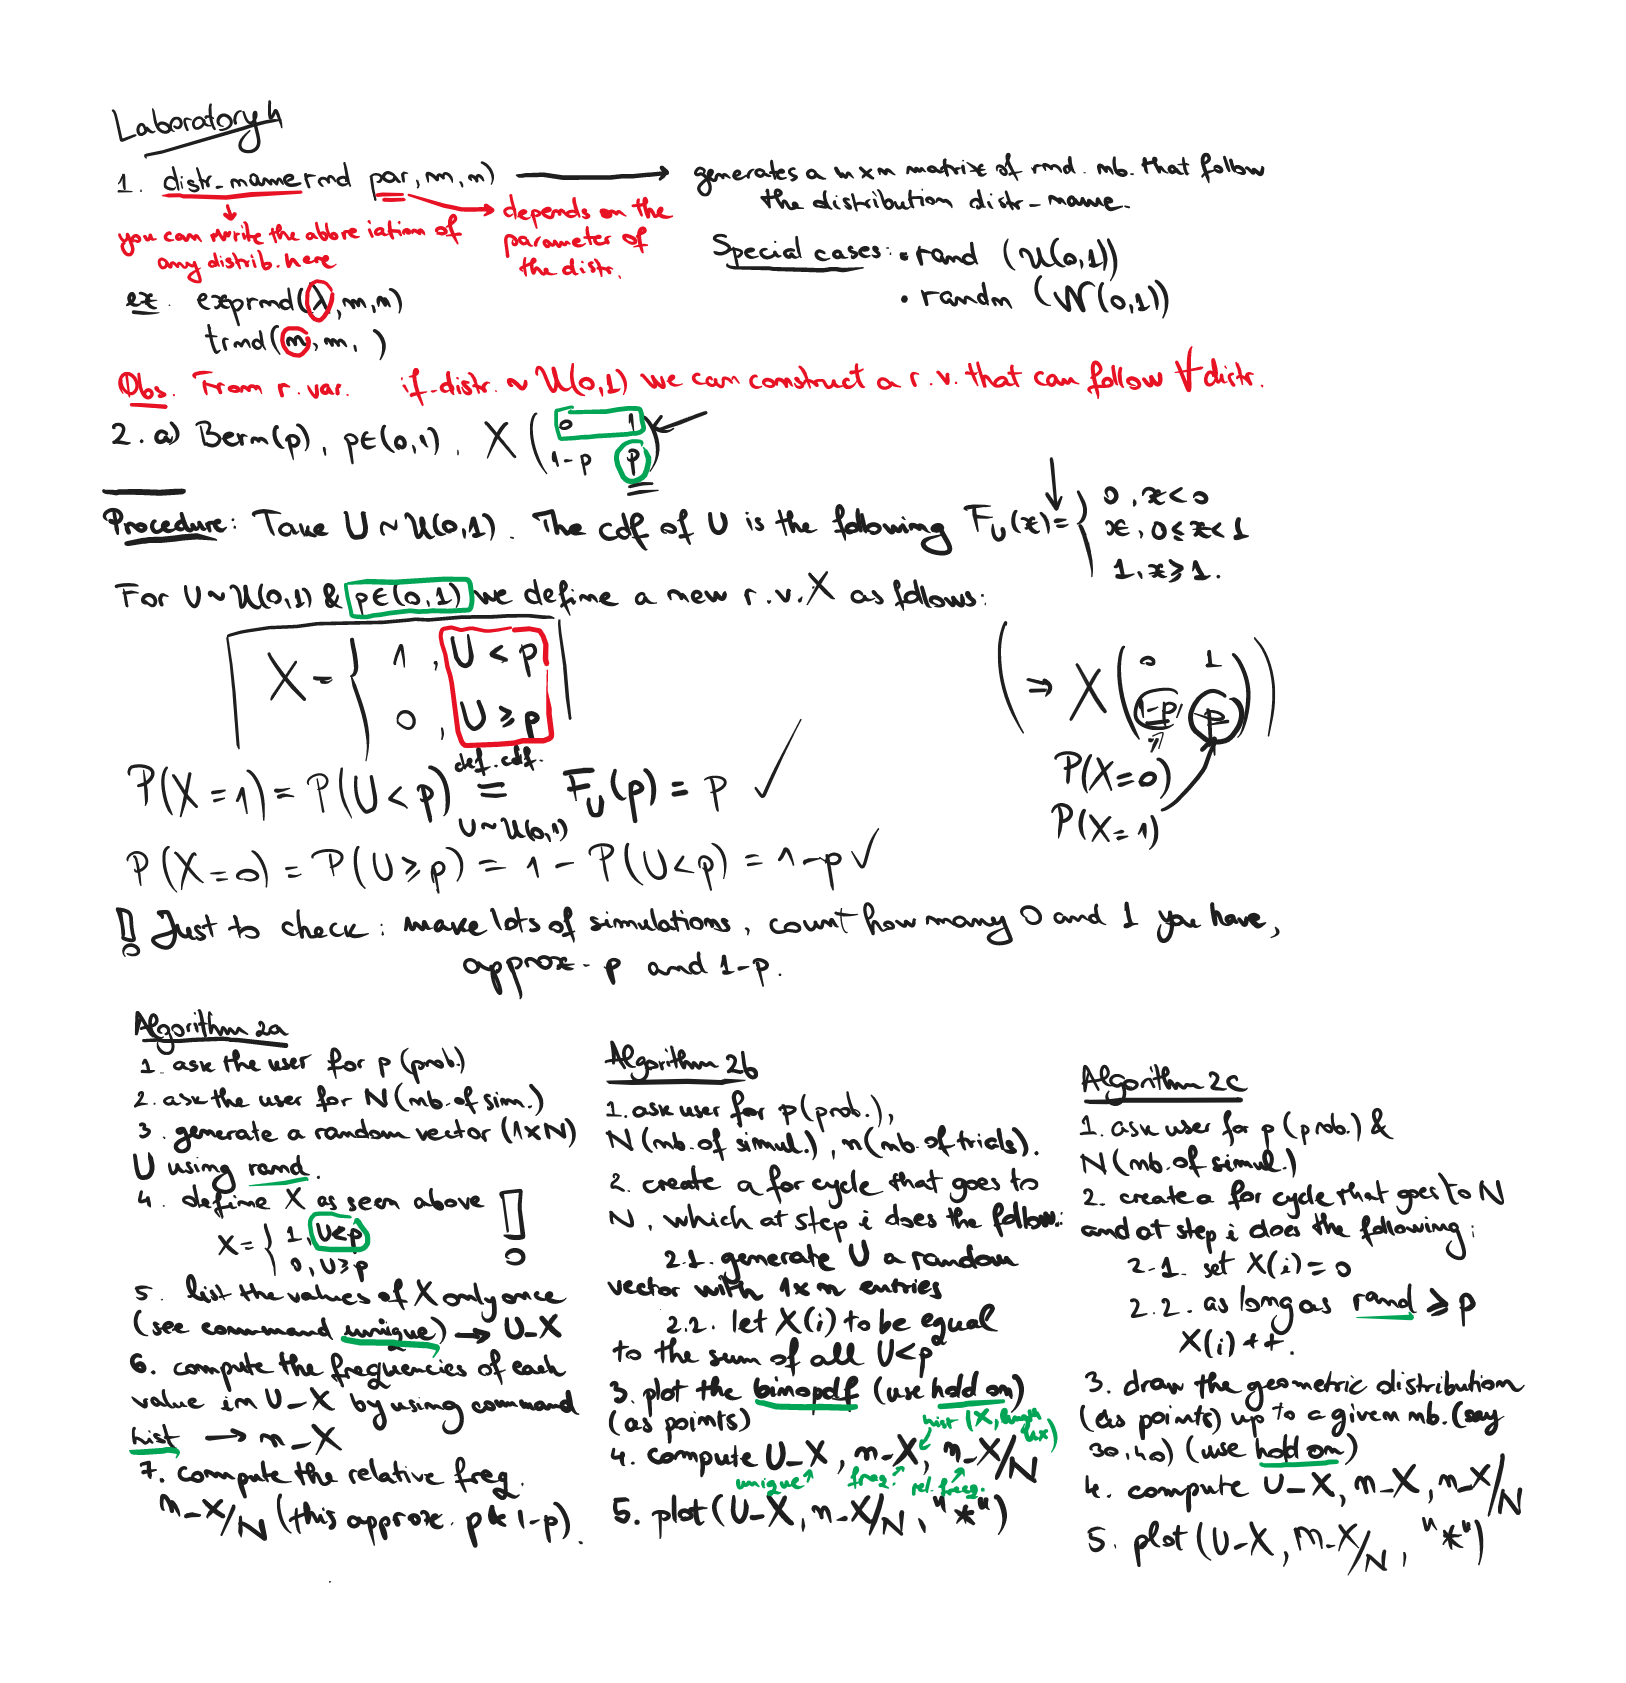 Laboratory 4
1. distr_name rnd par, m, n) → generates a m x n matrix of rnd. nb. that follow
the distribution distr_name.
↓
you can write the abbreviation of
any distrib. here
→ depends on the
parameter of
the distr.
Special cases: • rand (U(0,1))
• randn (N(0,1))
ex. exprnd(λ, m, n)
trnd(n, m, )
Obs. From r. var. if distr. ~ U(0,1) we can construct a r.v. that can follow ∀ distr.
2. a) Bern(p), p∈(0,1), X ( 0 1
1-p p )
Procedure: Take U ~ U(0,1). The cdf of U is the following F_U(x) = { 0, x < 0
x, 0 ≤ x < 1
1, x ≥ 1.
For U ~ U(0,1) & p∈(0,1) we define a new r.v. X as follows:
X = { 1, U < p
0, U ≥ p
( ⇒ X ( 0 1
1-p p ) )
P(X=0)
P(X=1)
P(X=1) = P(U < p) def. cdf. = U~U(0,1) F_U(p) = p ✓
P(X=0) = P(U ≥ p) = 1 - P(U < p) = 1-p ✓
! Just to check: make lots of simulations, count how many 0 and 1 you have,
approx. p and 1-p.
Algorithm 2a
1. ask the user for p (prob.)
2. ask the user for N (nb. of sim.)
3. generate a random vector (1xN)
U using rand.
4. define X as seen above !
X = { 1, U<p
0, U≥p
5. list the values of X only once
(see command unique) → U_X
6. compute the frequencies of each
value in U_X by using command
hist → n_X
7. compute the relative freq.
n_X/N (this approx. p & 1-p).
Algorithm 2b
1. ask user for p (prob.),
N (nb. of simul.), n (nb. of trials).
2. create a for cycle that goes to
N, which at step i does the follow.:
2.1. generate U a random
vector with 1xn entries
2.2. let X(i) to be equal
to the sum of all U<p
3. plot the binopdf (use hold on)
(as points)
hist (X, length
4. compute U_X, n_X, n_X/N
unique freq. rel. freq.
5. plot (U_X, n_X/N, "*")
Algorithm 2c
1. ask user for p (prob.) &
N (nb. of simul.)
2. create a for cycle that goes to N
and at step i does the following:
2.1. set X(i) = 0
2.2. as long as rand ≥ p
X(i)++.
3. draw the geometric distribution
(as points) up to a given nb. (say
30, 40) (use hold on)
4. compute U_X, n_X, n_X/N
5. plot (U_X, n_X/N, "*")